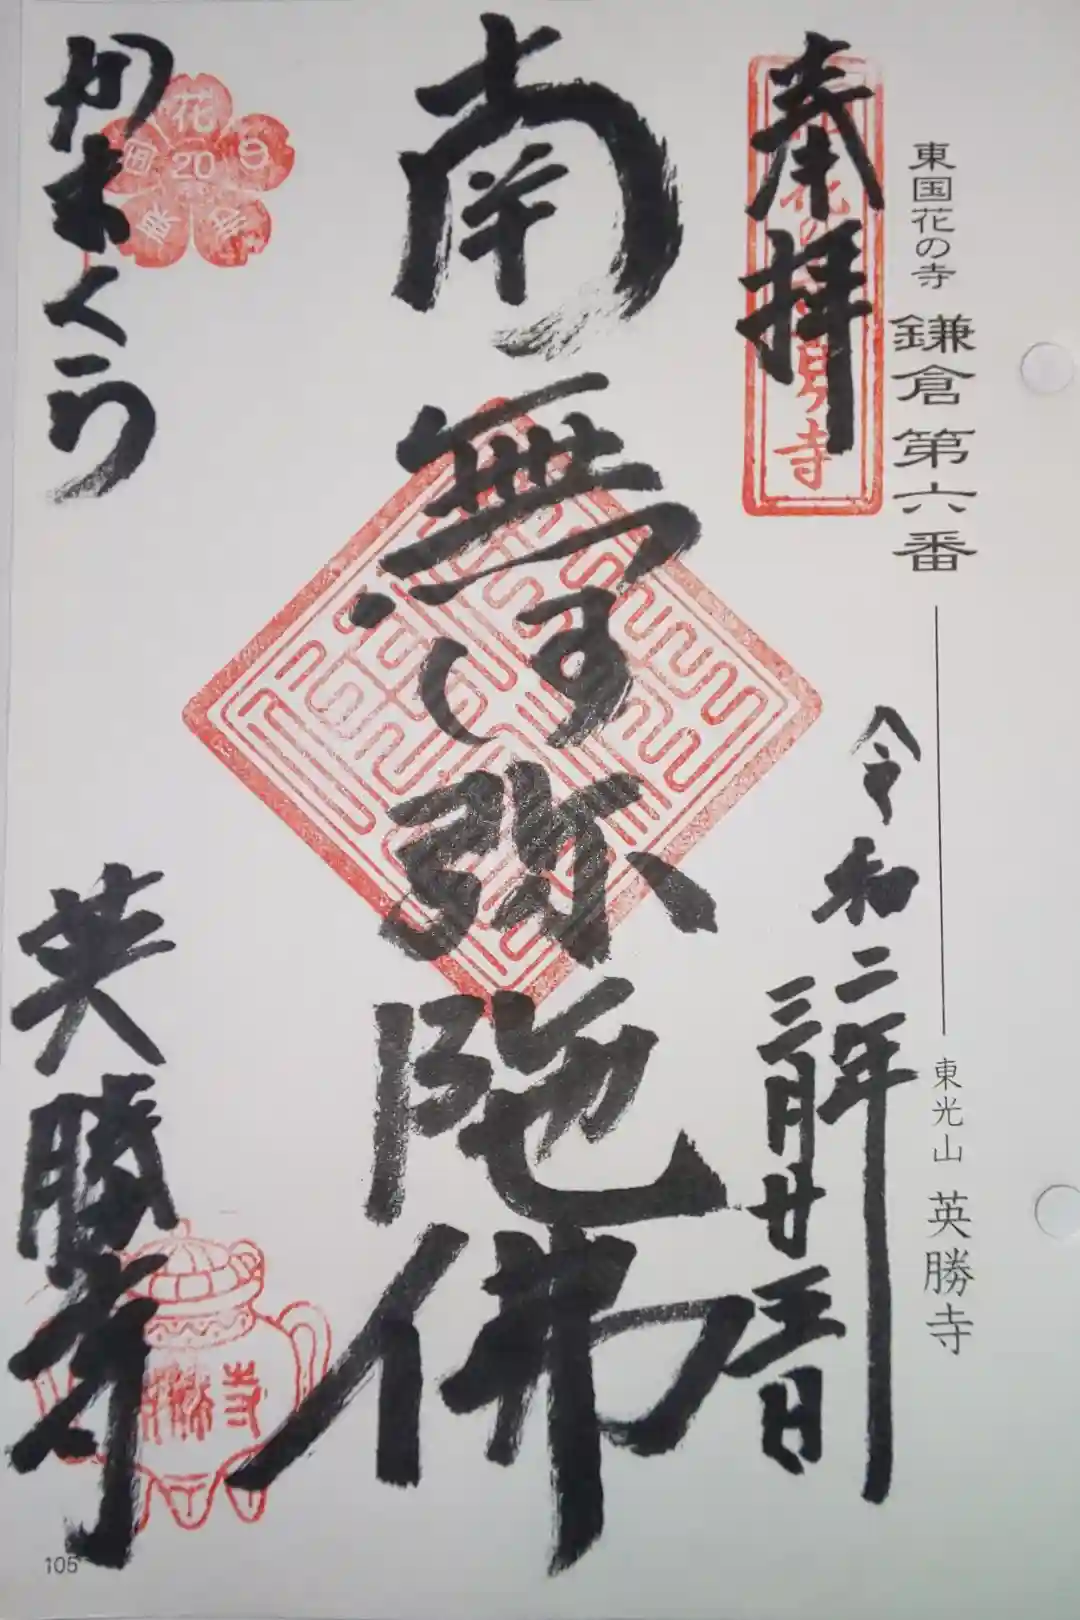 東国花の寺 鎌倉第六番 東光山 英勝寺
奉拝
寺
令和二年
三月廿五日
南無阿弥陀佛
かまくら
花
20
英勝寺
寺
105